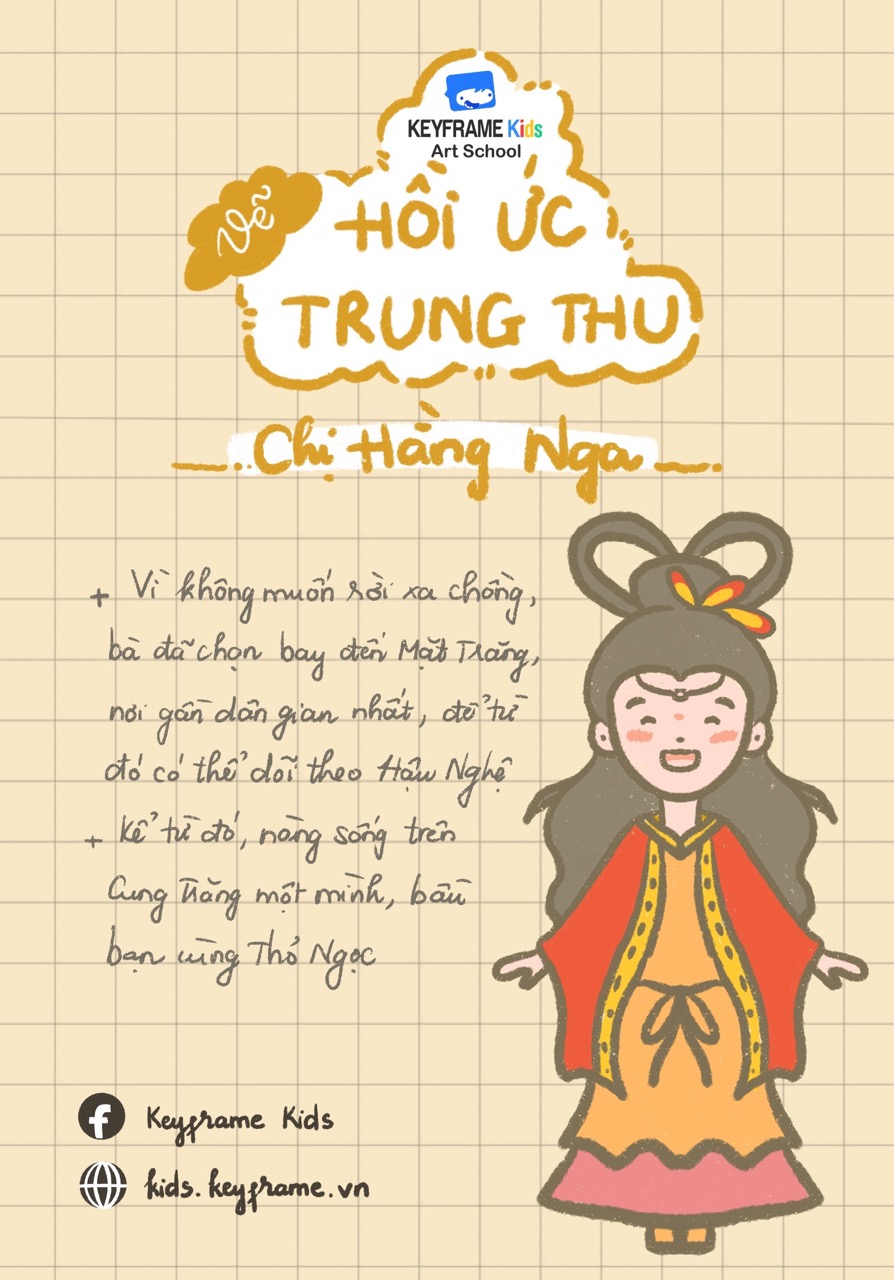 KEYFRAME Kids
Art School
Vẽ
HỒI ỨC
TRUNG THU
Chị Hằng Nga
+ Vì không muốn rời xa chồng,
bà đã chọn bay đến Mặt Trăng,
nơi gần dân gian nhất, để từ
đó có thể dõi theo Hậu Nghệ
+ Kể từ đó, nàng sống trên
Cung Trăng một mình, bầu
bạn cùng Thỏ Ngọc
f
Keyframe Kids
kids.keyframe.vn